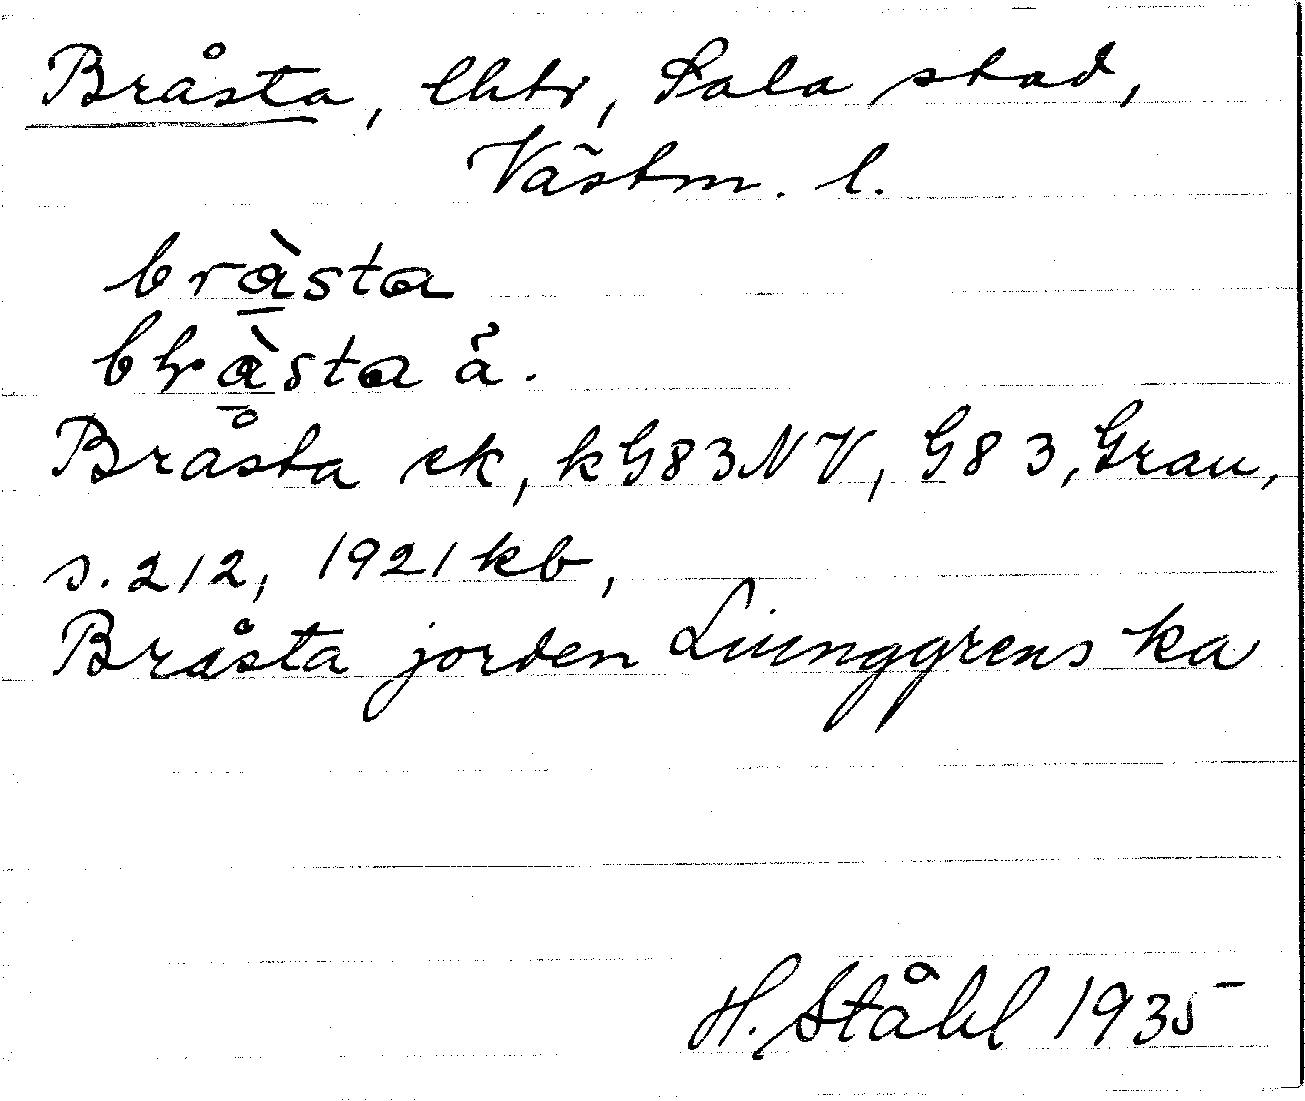 Bråsta, lhtr, Sala stad,
Västm. l.
bràsta
bràsta å.
Bråsta ek, kG83NV, G83, Grau,
s. 212, 1921 kb,
Bråsta jorden Liunggrens ka
H. Ståhl 1935